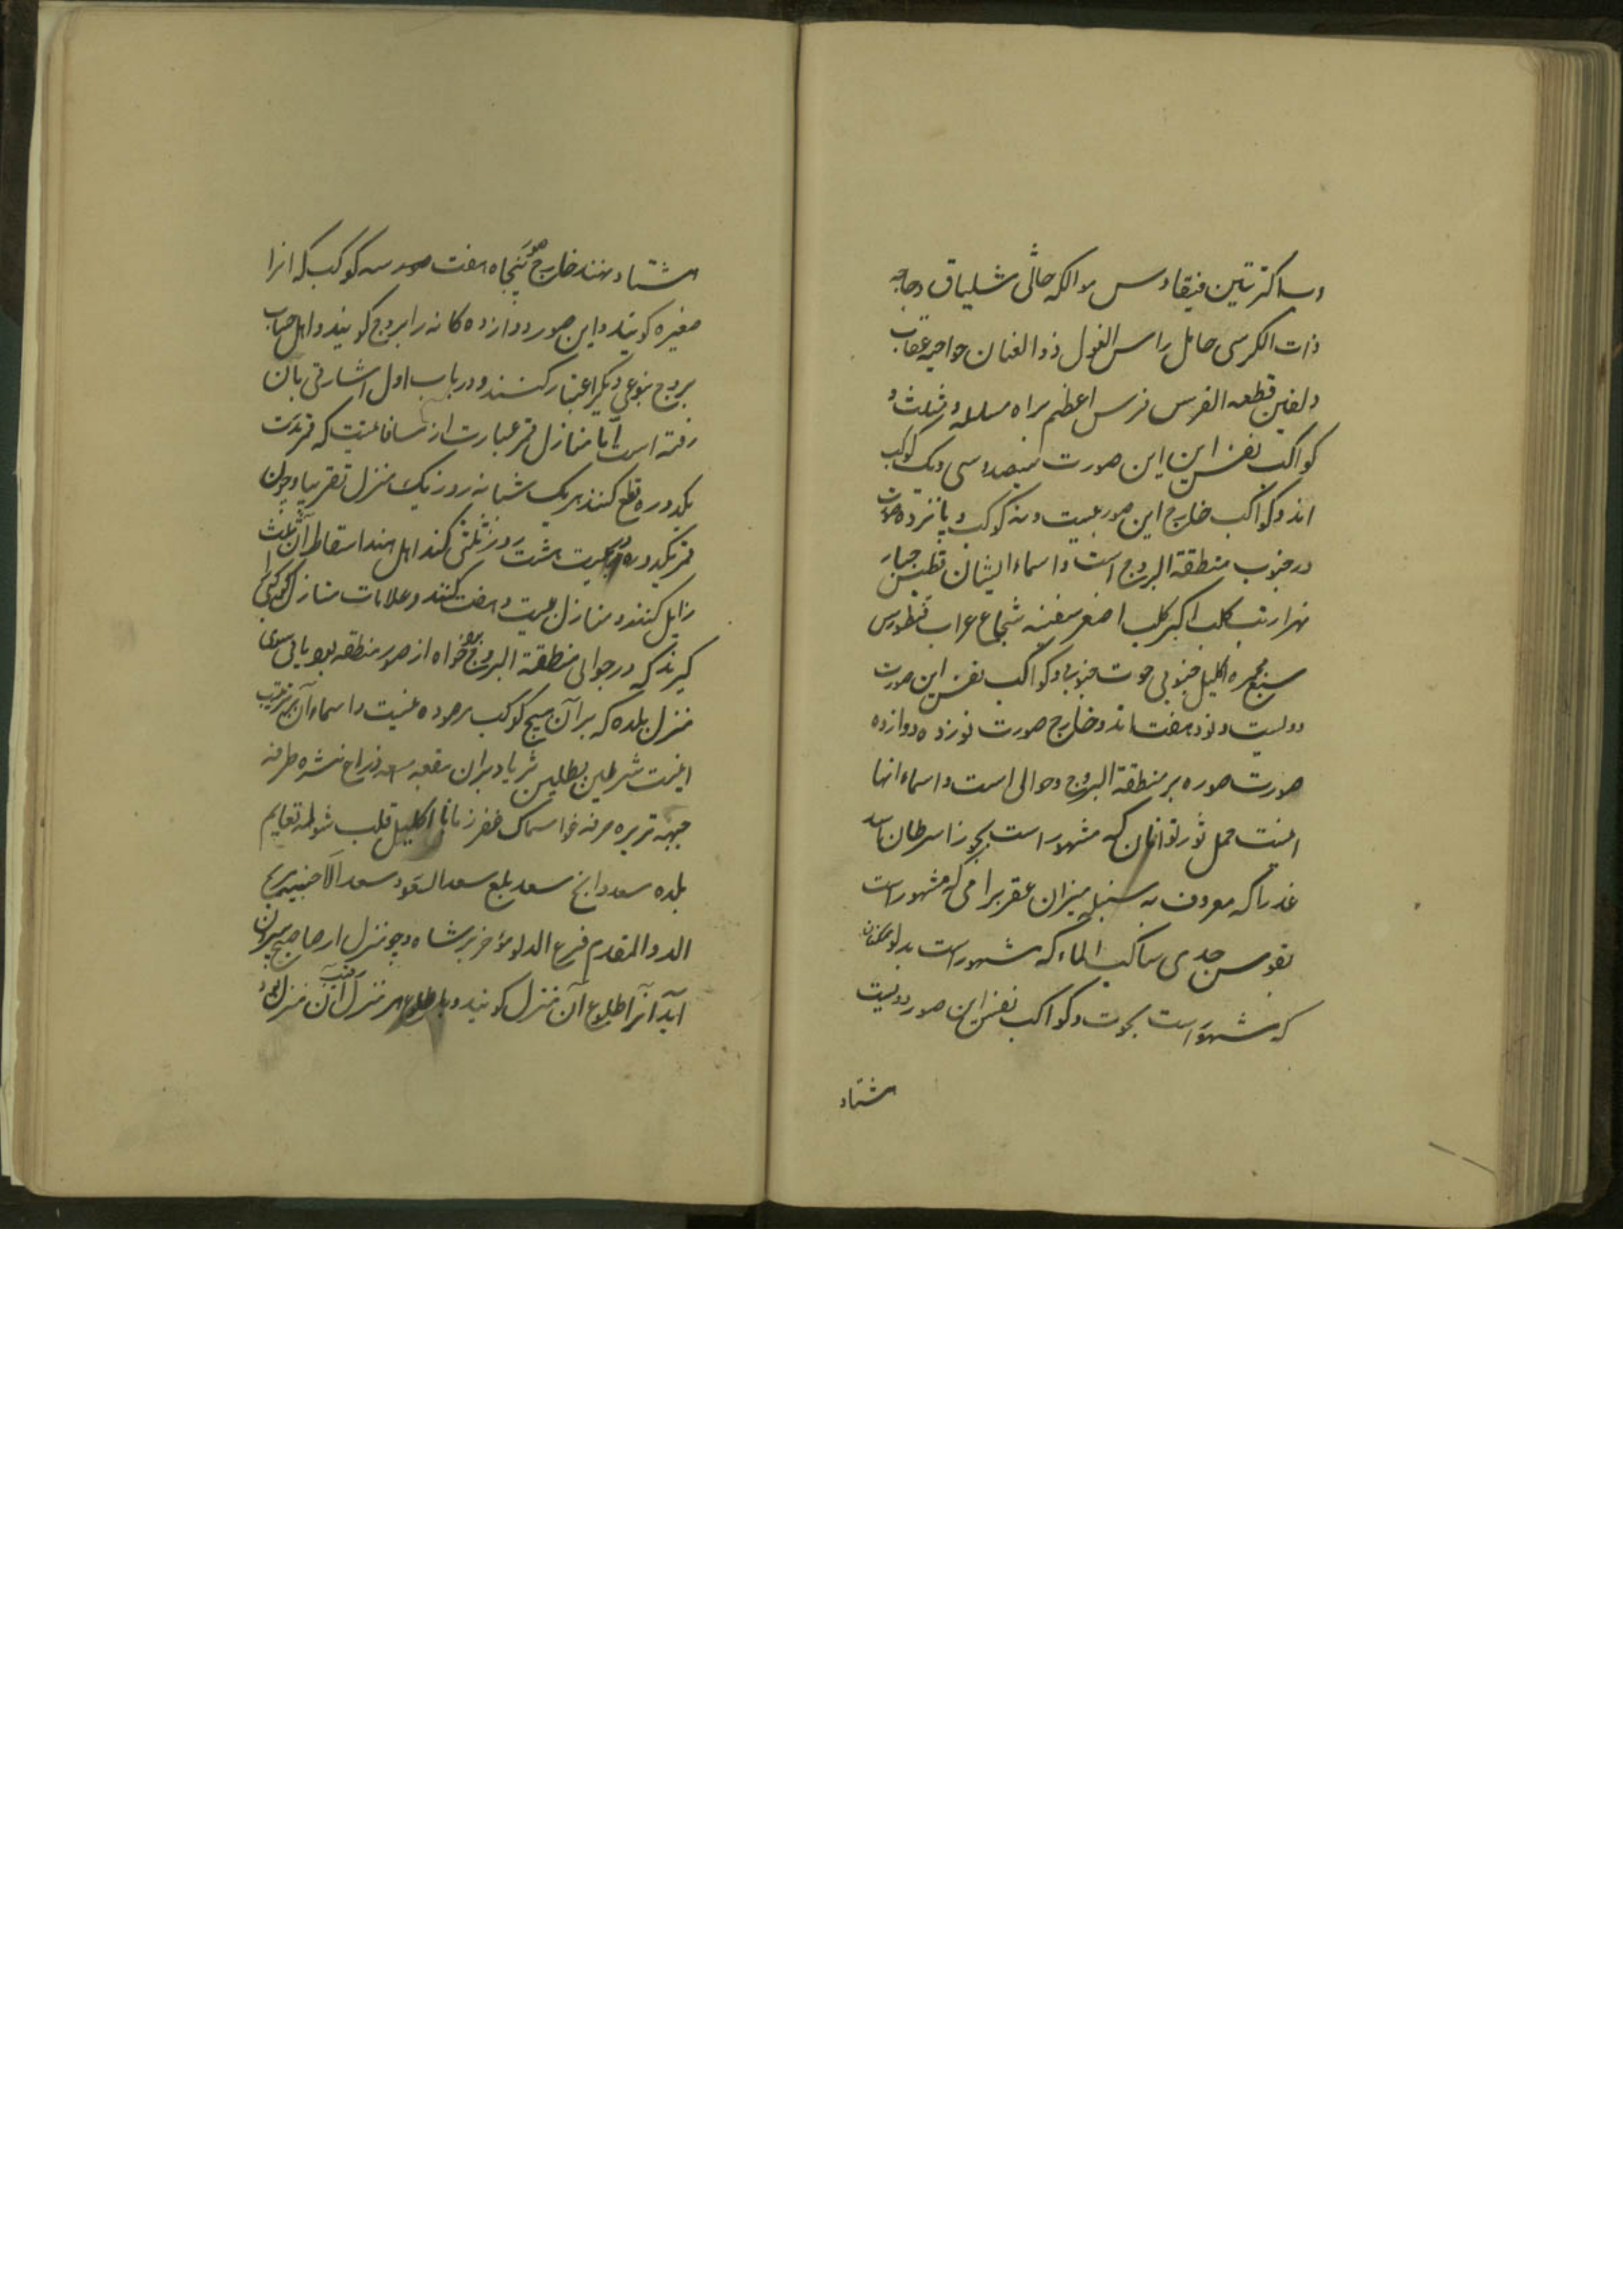 دب اکبر تنین فیقاوس عوا فکه جاثی شلیاق دجاجه
ذات الکرسی حامل راس الغول ذو العنان حوا حیه عقاب
دلفین قطعه الفرس فرس اعظم مراه مسلسله و مثلث و
کواکب نفس این صورت سیصد و سی و یک کوکب
اند و کواکب خارج این صور بیست و نه کوکب و پانزده صورت
در جنوب منطقة البروج است و اسماء ایشان قطیس جبار
نهر ارنب کلب اکبر کلب اصغر سفینه شجاع غراب قنطورس
سبع مجمره اکلیل جنوبی حوت جنوبی و کواکب نفس این صورت
دویست و نود هفت اند و خارج صورت نوزده و دوازده
صورت صوره بر منطقة البروج و حوالی است و اسماء انها
اینست حمل ثور توامان که مشهور است بجوزا سرطان اسد
عذرا که معروف به سنبله میزان عقرب رامی که مشهور است
بقوس جدی ساکب الماء که مشهور است بدلو سمکتان
که مشهور است بحوت و کواکب نفس این صور دویست
هشتاد
هشتاد و نهند خارج صور پنجاه هفت و سه کوکب که انرا
صغیره کویند و این صور دوازده کانه را بروج کویند و اهل حساب
بروج بنوعی دیکر اعتبار کنند و در باب اول اشارتی بان
رفته است اما منازل قمر عبارت از مسافاتیست که قمر بدت
یکدوره قطع کند هر یک شبانه روز یک منزل تقریبا و چون
قمر یکدوره در بیست هشت روز ثلثی کند اهل هند اسقاط آن ثلث
زایل کنند و منازل بیست و هفت کنند و علامات منازل کوکبی
کیرند که در حوالی منطقة البروج بود خواه از صور منطقه بود یا نی سوی
منزل بلده که بر آن هیچ کوکب مرصوده نیست و اسماء آن بترتیب
اینست شرطین بطین ثریا دبران هقعه هنعه ذراع نثره طرفه
جبهه زبره صرفه عوا سماک غفر زبانا اکلیل قلب شوله نعایم
بلده سعد ذابح سعد بلع سعد السعود سعد الاخبیه فرغ
الدلو المقدم فرغ الدلو مؤخر رشا و چو منزل ار صباح بیرون
آید آنرا طلوع آن منزل کویند و با طلوع هر منزل رقیب آن منزل بود